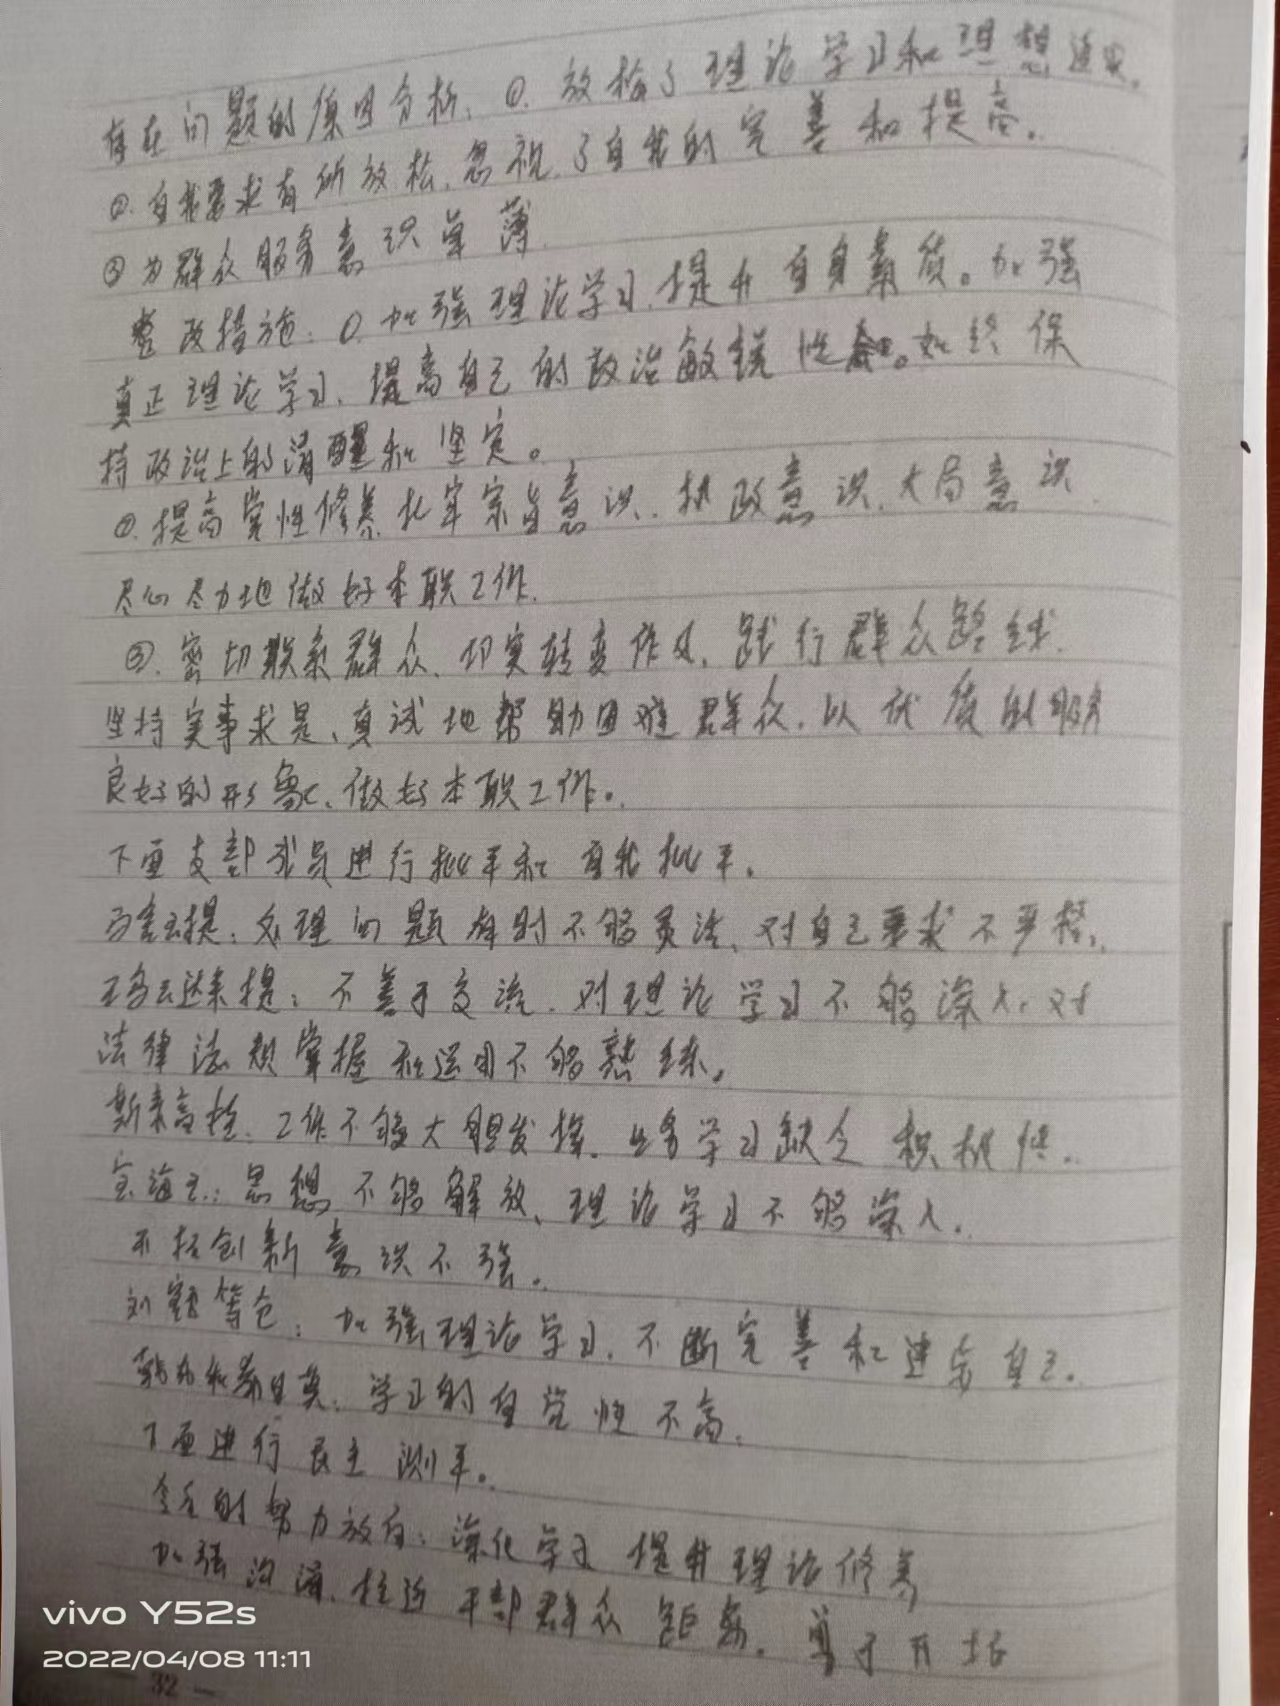 存在问题的原因分析：①.放松了理论学习和理想追求。
②.自我要求有所放松.忽视了自我的完善和提高。
③为群众服务意识单薄
整改措施：①.加强理论学习.提升自身素质。加强
真正理论学习、提高自己的政治敏锐性。始终保
持政治上的清醒和坚定。
②.提高党性修养扎牢宗旨意识.执政意识.大局意识
尽心尽力地做好本职工作.
③.密切联系群众.切实转变作风.践行群众路线.
坚持实事求是、真诚地帮助困难群众.以优质的服务
良好的形象.做好本职工作。
下面支部成员进行批评和自我批评。
提：处理问题有时不够灵活、对自己要求不严格.
乌云达来提：不善于交流.对理论学习不够深入.对
法律法规掌握和运用不够熟练。
斯来高娃：工作不够大胆发挥.业务学习缺乏积极性.
思想不够解放、理论学习不够深入.
开拓创新意识不强。
刘额等仓：加强理论学习.不断完善和进步自己.
学习的自觉性不高.
下面进行民主测评。
今后的努力方向：深化学习提升理论修养
加强沟通.拉近干部群众距离.勇于开拓
vivo Y52s
2022/04/08 11:11
32